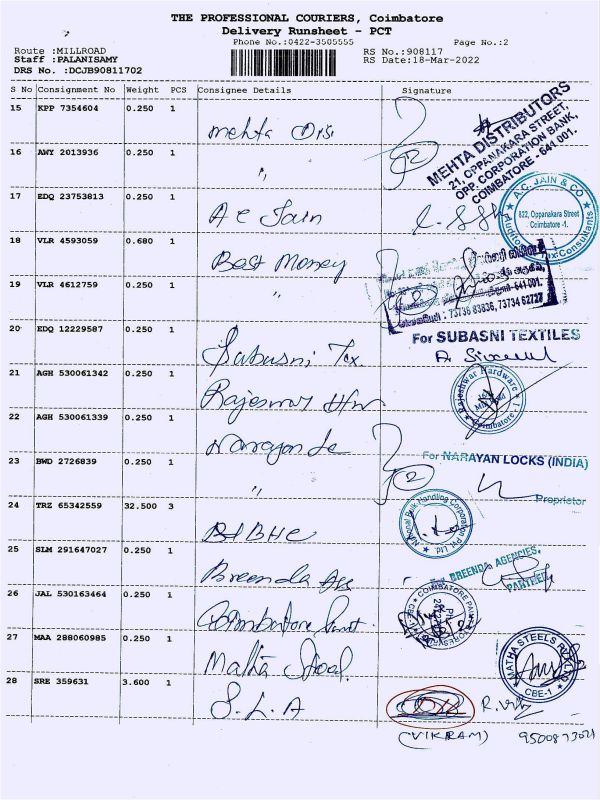 THE PROFESSIONAL COURIERS, Coimbatore
Delivery Runsheet - PCT
Phone No.:0422-3505555 Page No.:2
Route :MILLROAD RS No.:908117
Staff :PALANISAMY RS Date:18-Mar-2022
DRS No. :DCJB90811702
S No Consignment No Weight PCS Consignee Details Signature
15 KPP 7354604 0.250 1
Mehta Dis
MEHTA DISTRIBUTORS
21, OPPANAKARA STREET,
OPP. CORPORATION BANK,
COIMBATORE - 641 001.
16 AWY 2013936 0.250 1
"
2
17 EDQ 23753813 0.250 1
A C Jain
A.C. JAIN & CO
822, Oppanakara Street
Coimbatore -1.
18 VLR 4593059 0.680 1
Best Money
641-001.
73736 83836, 73734 62727
19 VLR 4612759 0.250 1
"
2
20 EDQ 12229587 0.250 1
Subasni Tex
For SUBASNI TEXTILES
21 AGH 530061342 0.250 1
Rajeswar
Rajeshwar Hardware
Coimbatore-1
22 AGH 530061339 0.250 1
Narayan
For NARAYAN LOCKS (INDIA)
23 BWD 2726839 0.250 1
"
2
Proprietor
24 TRZ 65342559 32.500 3
National Bulk Handling Corporation Pvt. Ltd.
25 SLM 291647027 0.250 1
Breenda
For BREENDA AGENCIES,
PARTNER
26 JAL 530163464 0.250 1
Coimbatore
COIMBATORE
27 MAA 288060985 0.250 1
Matha Steel
MATHA STEELS
CBE-1
28 SRE 359631 3.600 1
S.L.A
(VIKRAM)